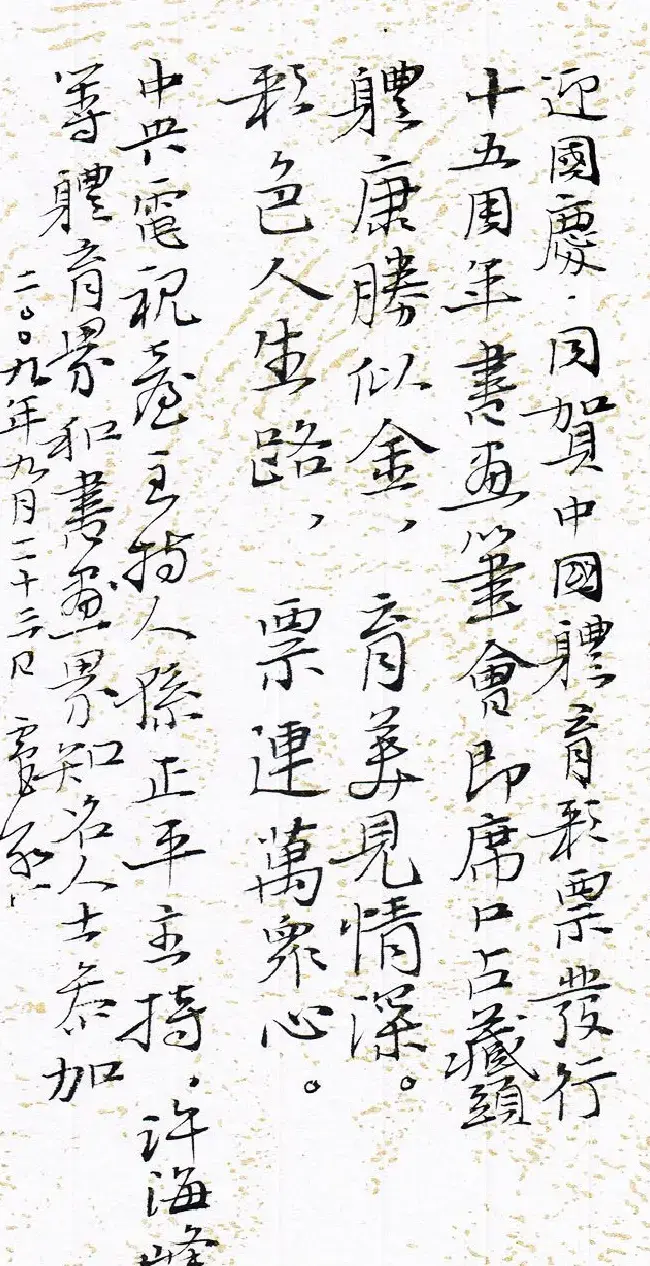 迎國慶·同賀中國體育彩票發行
十五周年書畫筆會即席口占藏頭
體康勝似金，育美見情深。
彩色人生路，票連萬眾心。
中央電視臺主持人孫正平主持，許海峰
等體育界和書畫界知名人士參加
二〇〇九年九月二十二日